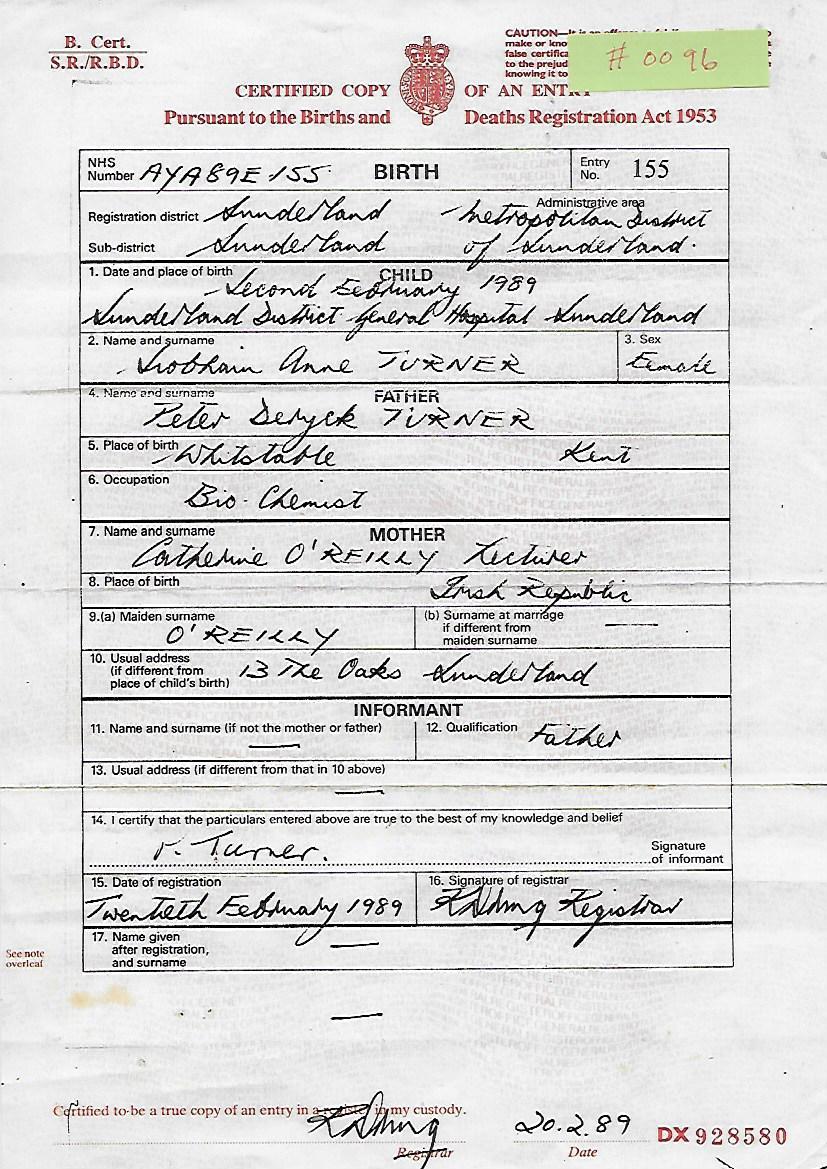 B. Cert.
S.R./R.B.D.
CAUTION—It is an offence
make or kno
false certifica
to the prejud
knowing it to
# 0096
CERTIFIED COPY OF AN ENTRY
Pursuant to the Births and Deaths Registration Act 1953
NHS Number AYA89E 155 BIRTH Entry No. 155
Administrative area
Registration district Sunderland Metropolitan District
Sub-district Sunderland of Sunderland.
CHILD
1. Date and place of birth Second February 1989
Sunderland District General Hospital Sunderland
2. Name and surname Siobhain Anne TURNER
3. Sex Female
FATHER
4. Name and surname Peter Deryck TURNER
5. Place of birth Whitstable Kent
6. Occupation Bio-Chemist
MOTHER
7. Name and surname Catherine O'REILLY Lecturer
8. Place of birth Irish Republic
9.(a) Maiden surname O'REILLY
(b) Surname at marriage
if different from
maiden surname —
10. Usual address
(if different from
place of child's birth) 13 The Oaks Sunderland
INFORMANT
11. Name and surname (if not the mother or father) —
12. Qualification Father
13. Usual address (if different from that in 10 above)
—
14. I certify that the particulars entered above are true to the best of my knowledge and belief
P. Turner. Signature
of informant
15. Date of registration
Twentieth February 1989
16. Signature of registrar
Registrar
17. Name given
after registration,
and surname —
See note
overleaf
—
Certified to be a true copy of an entry in a register in my custody.
20.2.89
Registrar Date
DX 928580